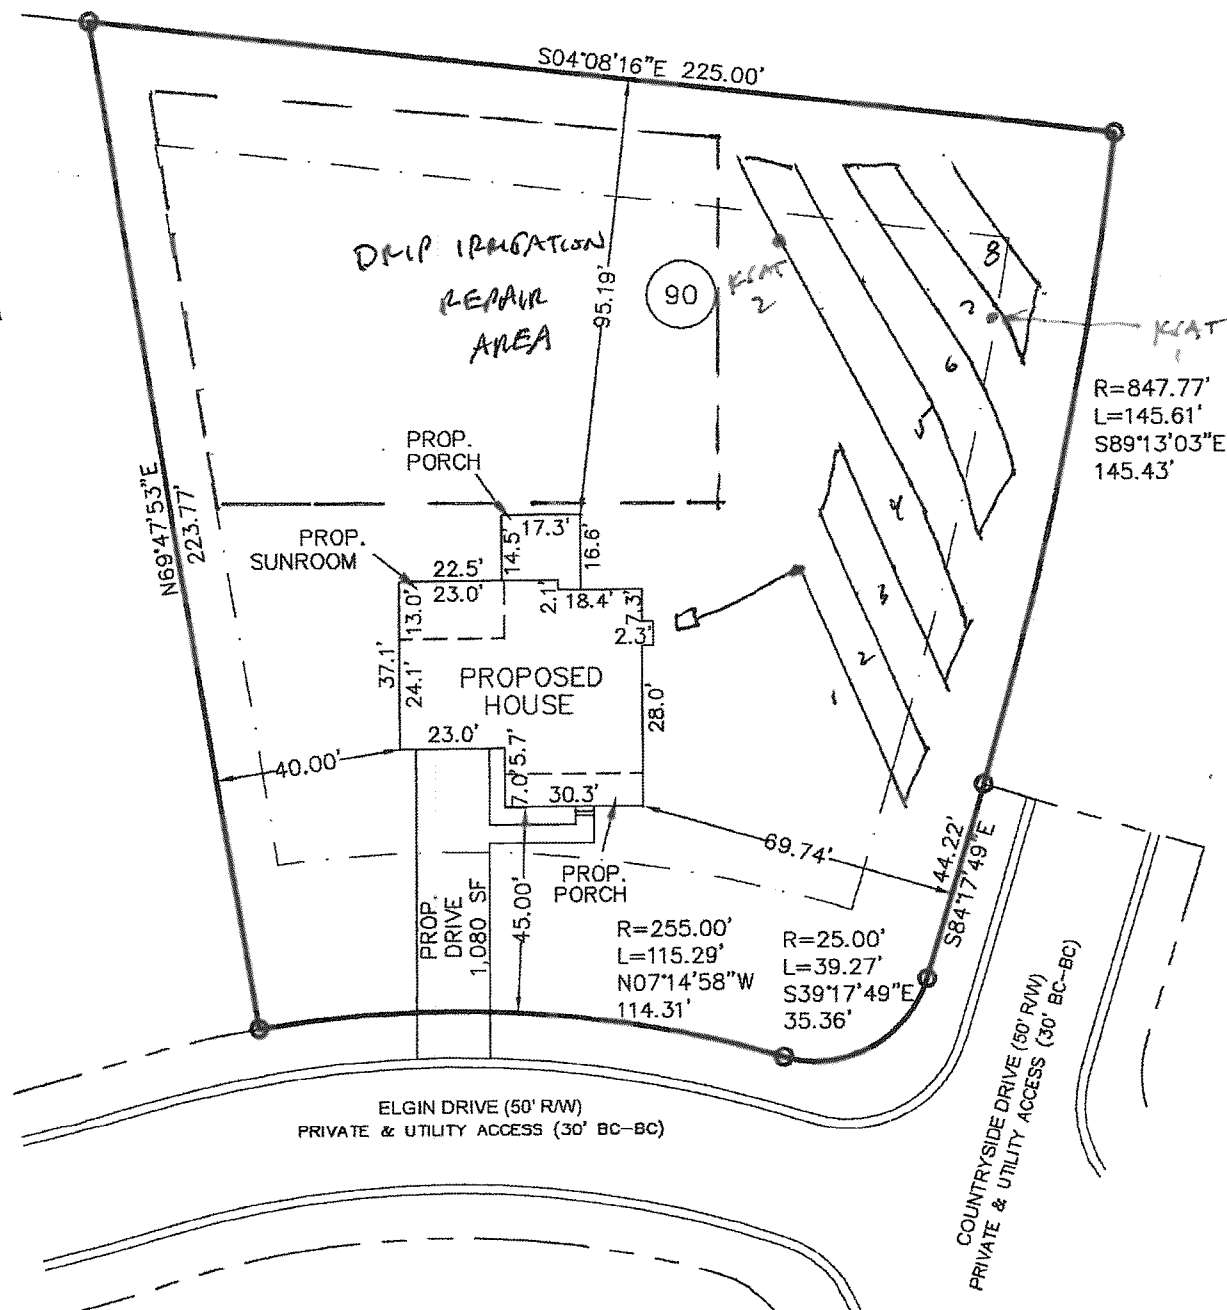 S04°08'16"E 225.00'
DRIP IRRIGATION
REPAIR
AREA
95.19'
90
KSAT
2
8
7
KSAT
1
6
5
4
3
2
1
R=847.77'
L=145.61'
S89°13'03"E
145.43'
N69°47'53"E
223.77'
PROP.
PORCH
PROP.
SUNROOM
17.3'
14.5'
16.6'
22.5'
23.0'
13.0'
2.1'
18.4'
7.3'
2.3'
37.1'
24.1'
PROPOSED
HOUSE
28.0'
23.0'
5.7'
7.0'
30.3'
40.00'
69.74'
PROP.
PORCH
PROP.
DRIVE
1,080 SF
45.00'
44.22'
S84°17'49"E
R=255.00'
L=115.29'
N07°14'58"W
114.31'
R=25.00'
L=39.27'
S39°17'49"E
35.36'
ELGIN DRIVE (50' R/W)
PRIVATE & UTILITY ACCESS (30' BC-BC)
COUNTRYSIDE DRIVE (50' R/W)
PRIVATE & UTILITY ACCESS (30' BC-BC)